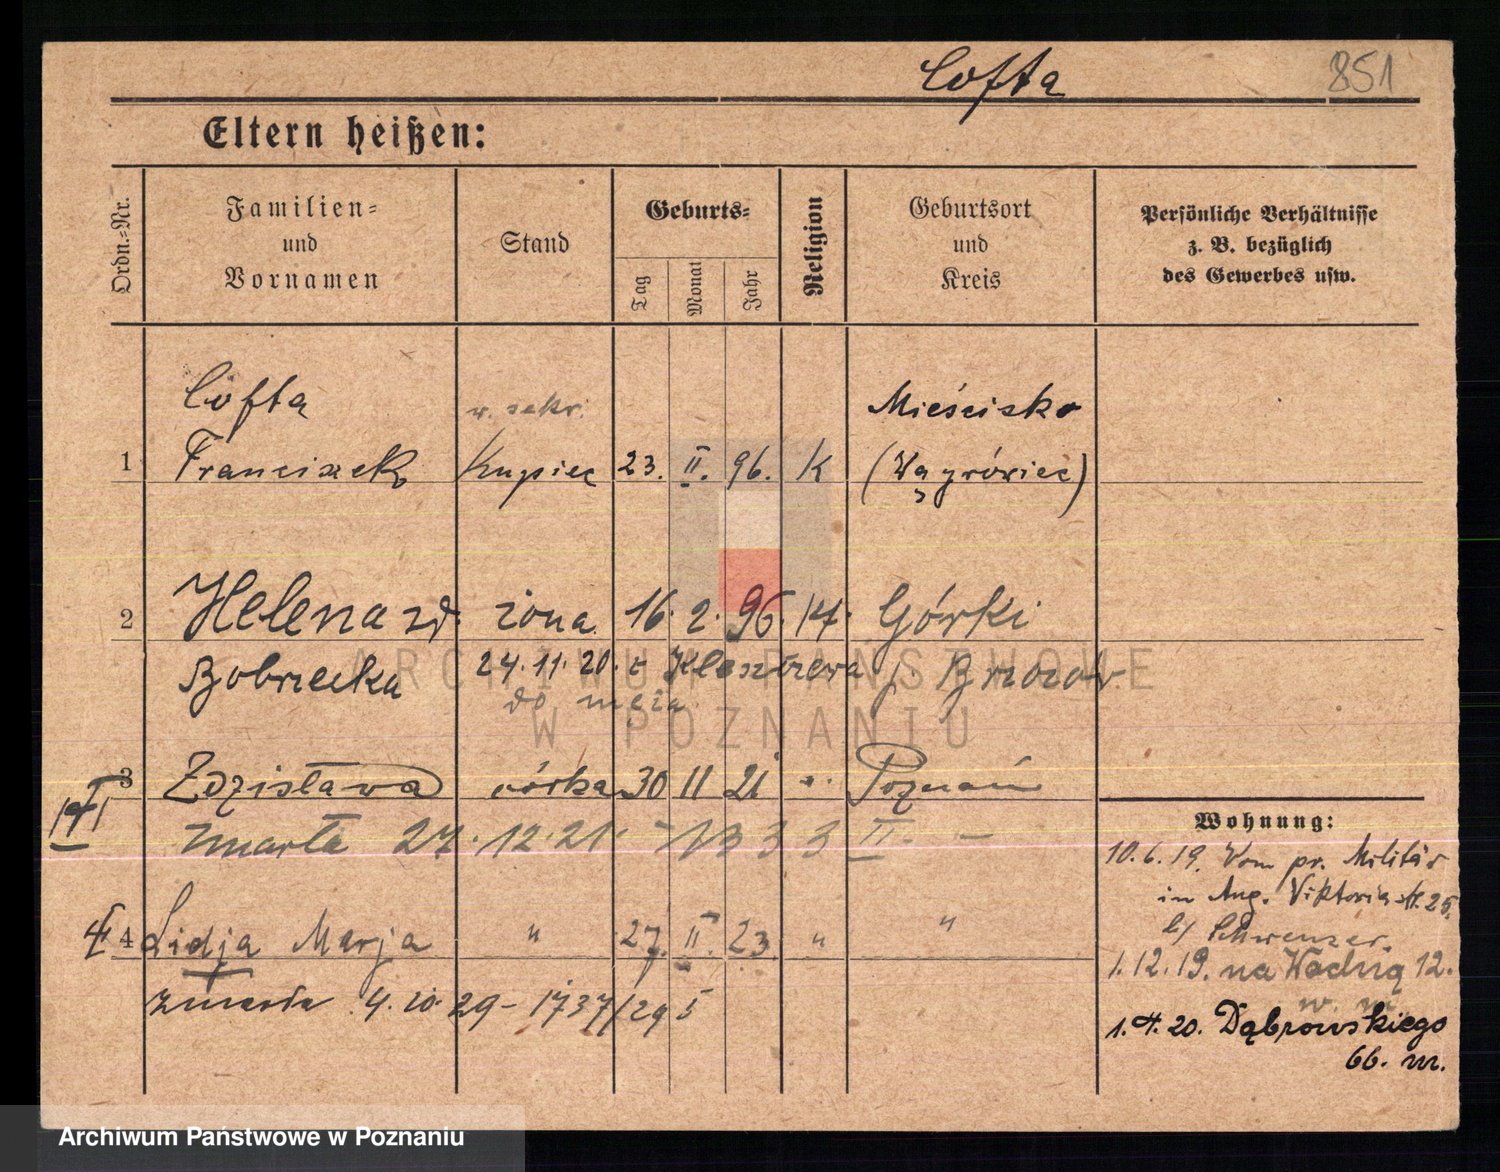 Cofta 851
Eltern heißen:
Ordn.-Nr.
Familien-
und
Vornamen
Stand
Geburts-
Tag
Monat
Jahr
Religion
Geburtsort
und
Kreis
Persönliche Verhältnisse
z. B. bezüglich
des Gewerbes usw.
Cofta Mieścisko
1 Franciszek Kupiec 23. II. 96. K (Wągrówiec)
2 Helena zd. żona 16. 2. 96. Górki
Bobrzecka 24.11.20. z
do męża
3 Zdzisława córka 30 11 21 " Poznań
zmarła 27.12.21.
Wohnung:
10.6.19. Vom pr. Militär
in Aug. Viktoria str. 25.
b/ Schwenzer.
4 Lidja Marja " 27. II. 23 " "
zmarła 4.10.29 - 1737/29
1.12.19. na 12.
w. m.
1.4.20. Dąbrowskiego
66. m.
ARCHIWUM PAŃSTWOWE
W POZNANIU
Archiwum Państwowe w Poznaniu